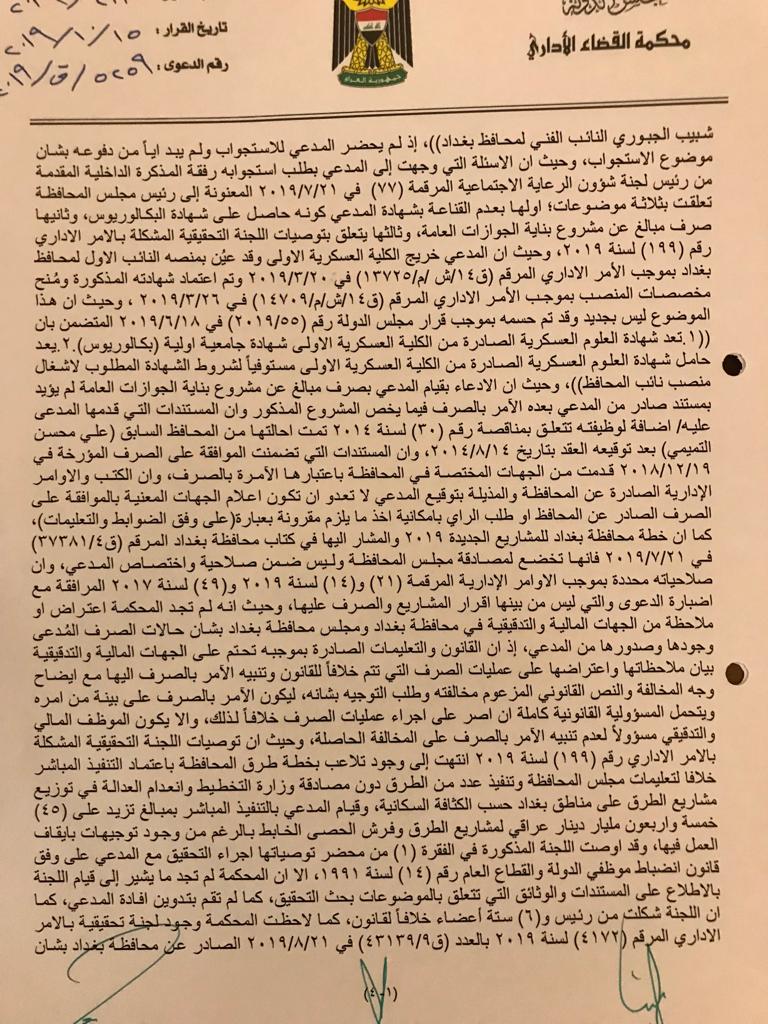 محكمة القضاء الأداري
تاريخ القرار : ٢٠١٩/١٠/١٥
رقم الدعوى : ٥٢٥٩/ق/٢٠١٩
جمهورية العراق
شبيب الجبوري النائب الفني لمحافظ بغداد))، إذ لم يحضر المدعي للاستجواب ولم يبد اياً من دفوعه بشان
موضوع الاستجواب، وحيث ان الاسئلة التي وجهت إلى المدعي بطلب استجوابه رفقة المذكرة الداخلية المقدمة
من رئيس لجنة شؤون الرعاية الاجتماعية المرقمة (٧٧) في ٢٠١٩/٧/٢١ المعنونة إلى رئيس مجلس المحافظة
تعلقت بثلاثة موضوعات؛ اولها بعدم القناعة بشهادة المدعي كونه حاصل على شهادة البكالوريوس، وثانيها
صرف مبالغ عن مشروع بناية الجوازات العامة، وثالثها يتعلق بتوصيات اللجنة التحقيقية المشكلة بالامر الاداري
رقم (١٩٩) لسنة ٢٠١٩، وحيث ان المدعي خريج الكلية العسكرية الاولى وقد عيُن بمنصبه النائب الاول لمحافظ
بغداد بموجب الأمر الاداري المرقم (ق١٤/ش /م/١٣٧٢٥) في ٢٠١٩/٣/٢٠ وتم اعتماد شهادته المذكورة ومُنح
مخصصات المنصب بموجب الأمر الاداري المرقم (ق١٤/ش/م/١٤٧٠٩) في ٢٠١٩/٣/٢٦ ، وحيث ان هذا
الموضوع ليس بجديد وقد تم حسمه بموجب قرار مجلس الدولة رقم (٢٠١٩/٥٥) في ٢٠١٩/٦/١٨ المتضمن بان
((١.تعد شهادة العلوم العسكرية الصادرة من الكلية العسكرية الاولى شهادة جامعية اولية (بكالوريوس).٢.يعد
حامل شهادة العلوم العسكرية الصادرة من الكلية العسكرية الاولى مستوفياً لشروط الشهادة المطلوب لاشغال
منصب نائب المحافظ))، وحيث ان الادعاء بقيام المدعي بصرف مبالغ عن مشروع بناية الجوازات العامة لم يؤيد
بمستند صادر من المدعي بعده الأمر بالصرف فيما يخص المشروع المذكور وان المستندات التي قدمها المدعى
عليه/ اضافة لوظيفته تتعلق بمناقصة رقم (٣٠) لسنة ٢٠١٤ تمت احالتها من المحافظ السابق (علي محسن
التميمي) بعد توقيعه العقد بتاريخ ٢٠١٤/٨/١٤، وان المستندات التي تضمنت الموافقة على الصرف المؤرخة في
٢٠١٨/١٢/١٩ قدمت من الجهات المختصة في المحافظة باعتبارها الآمرة بالصرف، وان الكتب والاوامر
الإدارية الصادرة عن المحافظة والمذيلة بتوقيع المدعي لا تعدو ان تكون اعلام الجهات المعنية بالموافقة على
الصرف الصادر عن المحافظ او طلب الراي بامكانية اخذ ما يلزم مقرونة بعبارة(على وفق الضوابط والتعليمات)،
كما ان خطة محافظة بغداد للمشاريع الجديدة ٢٠١٩ والمشار اليها في كتاب محافظة بغداد المرقم (ق٣٧٣٨١/٤)
في ٢٠١٩/٧/٢١ فانها تخضع لمصادقة مجلس المحافظة وليس ضمن صلاحية واختصاص المدعي، وان
صلاحياته محددة بموجب الاوامر الإدارية المرقمة (٢١) و(١٤) لسنة ٢٠١٩ و(٤٩) لسنة ٢٠١٧ المرافقة مع
اضبارة الدعوى والتي ليس من بينها اقرار المشاريع والصرف عليها، وحيث انه لم تجد المحكمة اعتراض او
ملاحظة من الجهات المالية والتدقيقية في محافظة بغداد ومجلس محافظة بغداد بشان حالات الصرف المُدعى
وجودها وصدورها من المدعي، إذ ان القانون والتعليمات الصادرة بموجبه تحتم على الجهات المالية والتدقيقية
بيان ملاحظاتها واعتراضها على عمليات الصرف التي تتم خلافاً للقانون وتنبيه الأمر بالصرف اليها مع ايضاح
وجه المخالفة والنص القانوني المزعوم مخالفته وطلب التوجيه بشانه، ليكون الآمر بالصرف على بينة من امره
ويتحمل المسؤولية القانونية كاملة ان اصر على اجراء عمليات الصرف خلافاً لذلك، والا يكون الموظف المالي
والتدقيقي مسؤولاً لعدم تنبيه الأمر بالصرف على المخالفة الحاصلة، وحيث ان توصيات اللجنة التحقيقية المشكلة
بالامر الاداري رقم (١٩٩) لسنة ٢٠١٩ انتهت إلى وجود تلاعب بخطة طرق المحافظة باعتماد التنفيذ المباشر
خلافا لتعليمات مجلس المحافظة وتنفيذ عدد من الطرق دون مصادقة وزارة التخطيط وانعدام العدالة في توزيع
مشاريع الطرق على مناطق بغداد حسب الكثافة السكانية، وقيام المدعي بالتنفيذ المباشر بمبالغ تزيد على (٤٥)
خمسة واربعون مليار دينار عراقي لمشاريع الطرق وفرش الحصى الخابط بالرغم من وجود توجيهات بايقاف
العمل فيها، وقد اوصت اللجنة المذكورة في الفقرة (١) من محضر توصياتها اجراء التحقيق مع المدعي على وفق
قانون انضباط موظفي الدولة والقطاع العام رقم (١٤) لسنة ١٩٩١، الا ان المحكمة لم تجد ما يشير إلى قيام اللجنة
بالاطلاع على المستندات والوثائق التي تتعلق بالموضوعات بحث التحقيق، كما لم تقم بتدوين افادة المدعي، كما
ان اللجنة شكلت من رئيس و(٦) ستة أعضاء خلافاً لقانون، كما لاحظت المحكمة وجود لجنة تحقيقية بالامر
الاداري المرقم (٤١٧٢) لسنة ٢٠١٩ بالعدد (ق٤٣١٣٩/٩) في ٢٠١٩/٨/٢١ الصادر عن محافظة بغداد بشان
(٤-١)